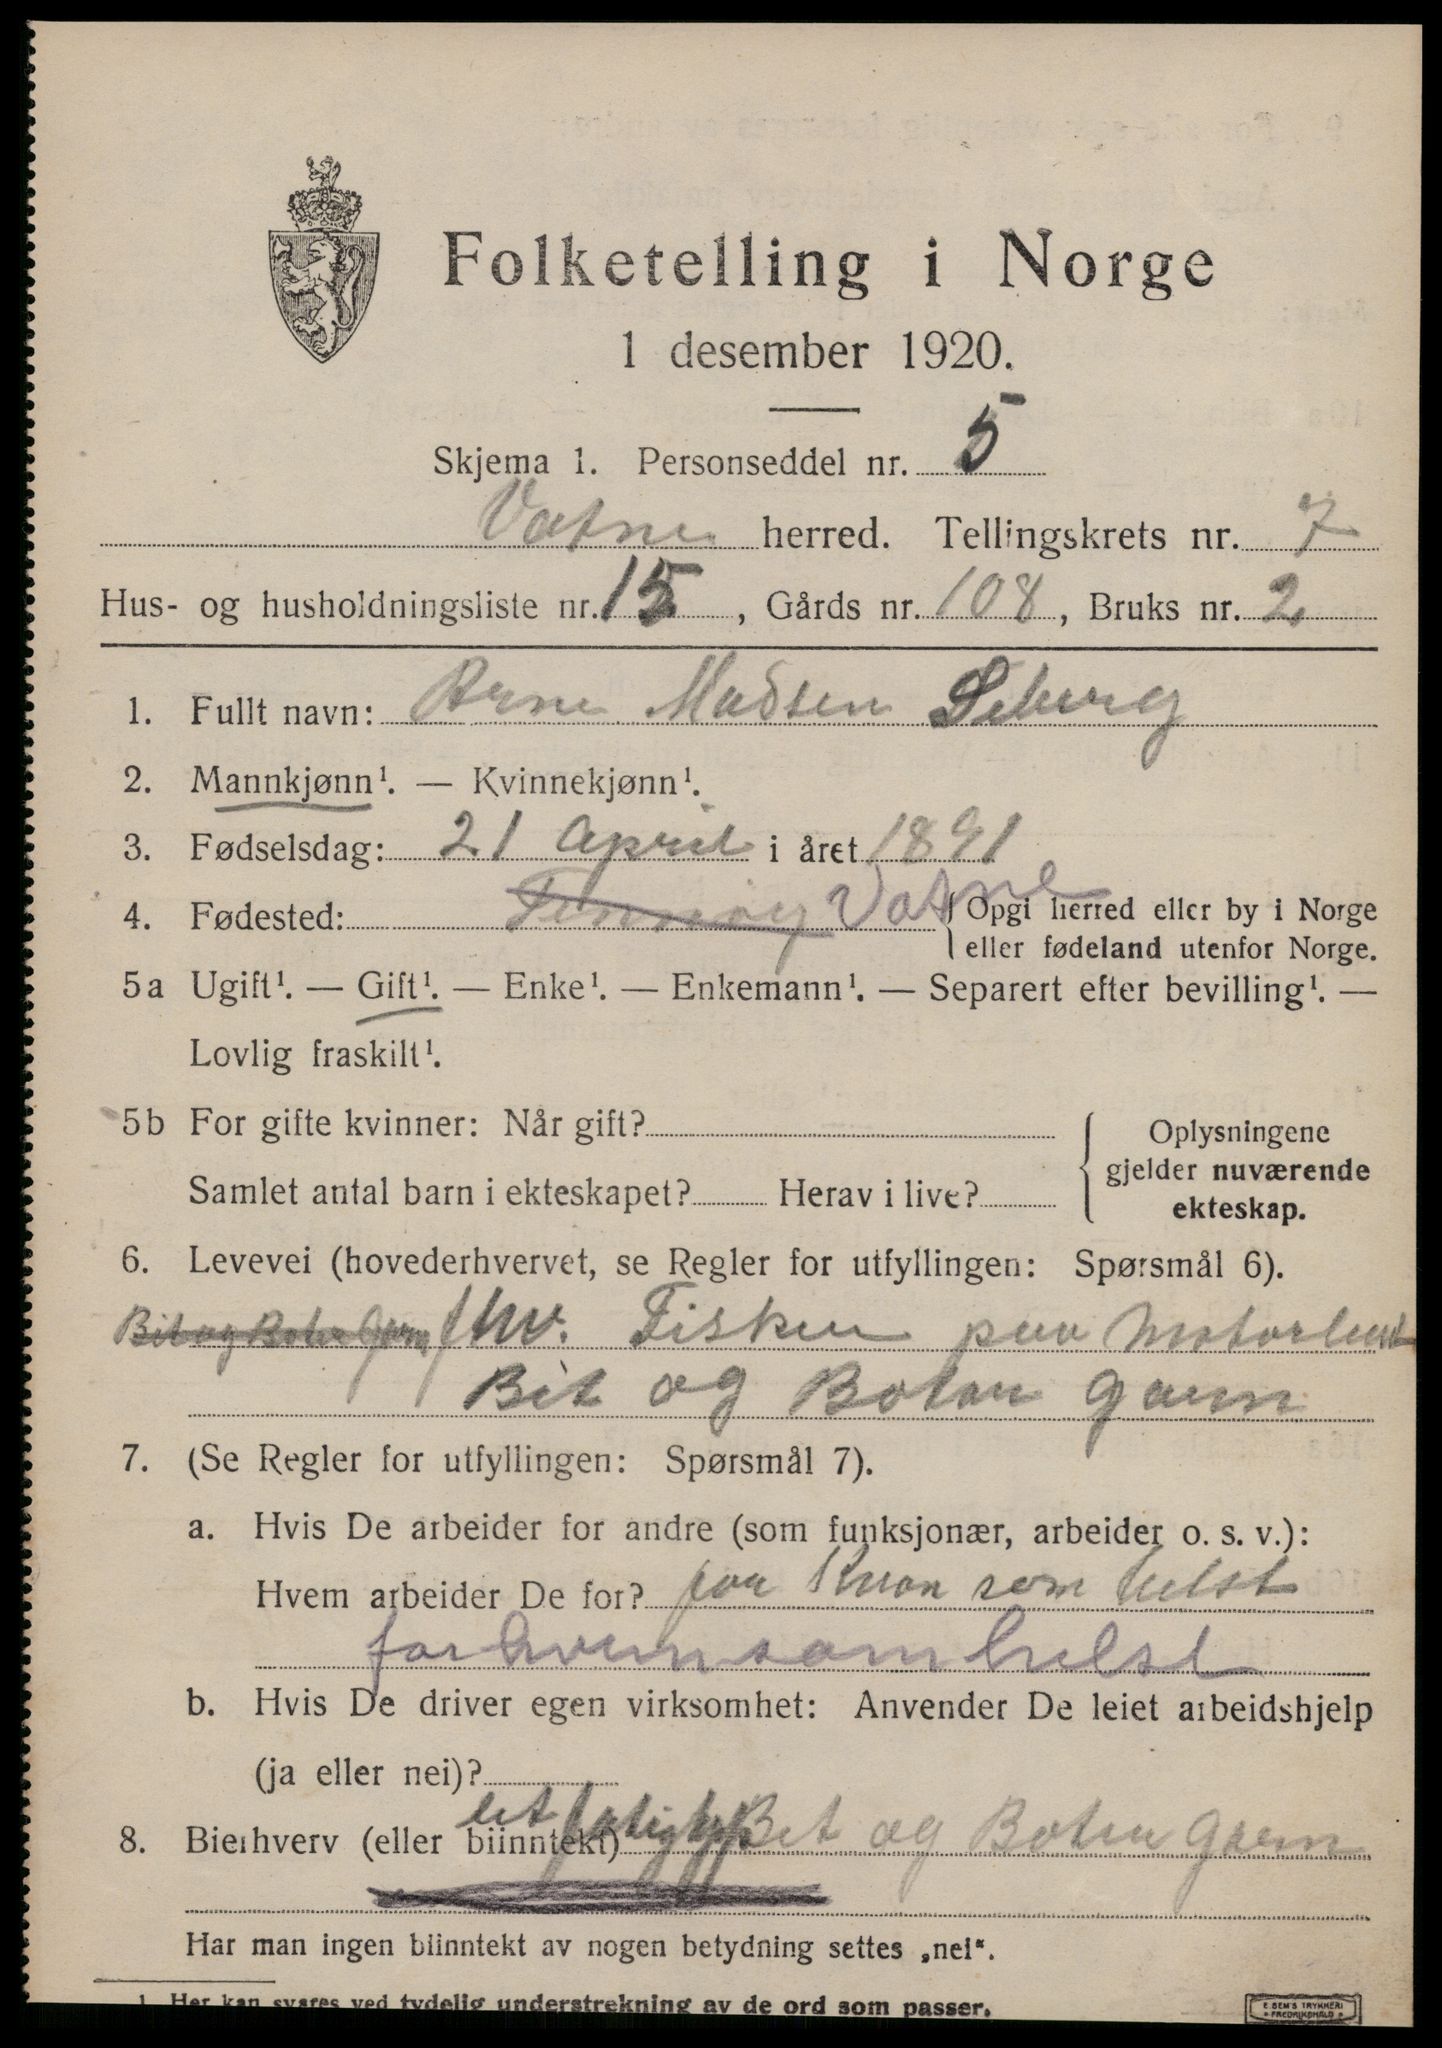 Folketelling i Norge
1 desember 1920.
Skjema 1. Personseddel nr. 5
Vatne herred. Tellingskrets nr. 7
Hus- og husholdningsliste nr. 15, Gårds nr. 108, Bruks nr. 2
1. Fullt navn: Arne Madsen Seberg
2. Mannkjønn¹. — Kvinnekjønn¹.
3. Fødselsdag: 21 April i året 1891
4. Fødested: Vatne { Opgi herred eller by i Norge
eller fødeland utenfor Norge.
5a Ugift¹. — Gift¹. — Enke¹. — Enkemann¹. — Separert efter bevilling¹. —
Lovlig fraskilt¹.
5b For gifte kvinner: Når gift?
Samlet antal barn i ekteskapet? Herav i live?
{ Oplysningene
gjelder nuværende
ekteskap.
6. Levevei (hovederhvervet, se Regler for utfyllingen: Spørsmål 6).
Bit og Boter Garn Fisker paa Motor
Bit og Boter garn
7. (Se Regler for utfyllingen: Spørsmål 7).
a. Hvis De arbeider for andre (som funksjonær, arbeider o. s. v.):
Hvem arbeider De for? som helst
for hvem som helst
b. Hvis De driver egen virksomhet: Anvender De leiet arbeidshjelp
(ja eller nei)?
8. Bierhverv (eller biinntekt) Bet og Boter Garn
Har man ingen biinntekt av nogen betydning settes „nei“.
1. Her kan svares ved tydelig understrekning av de ord som passer.
E. SEM'S TRYKKERI
FREDRIKSHALD